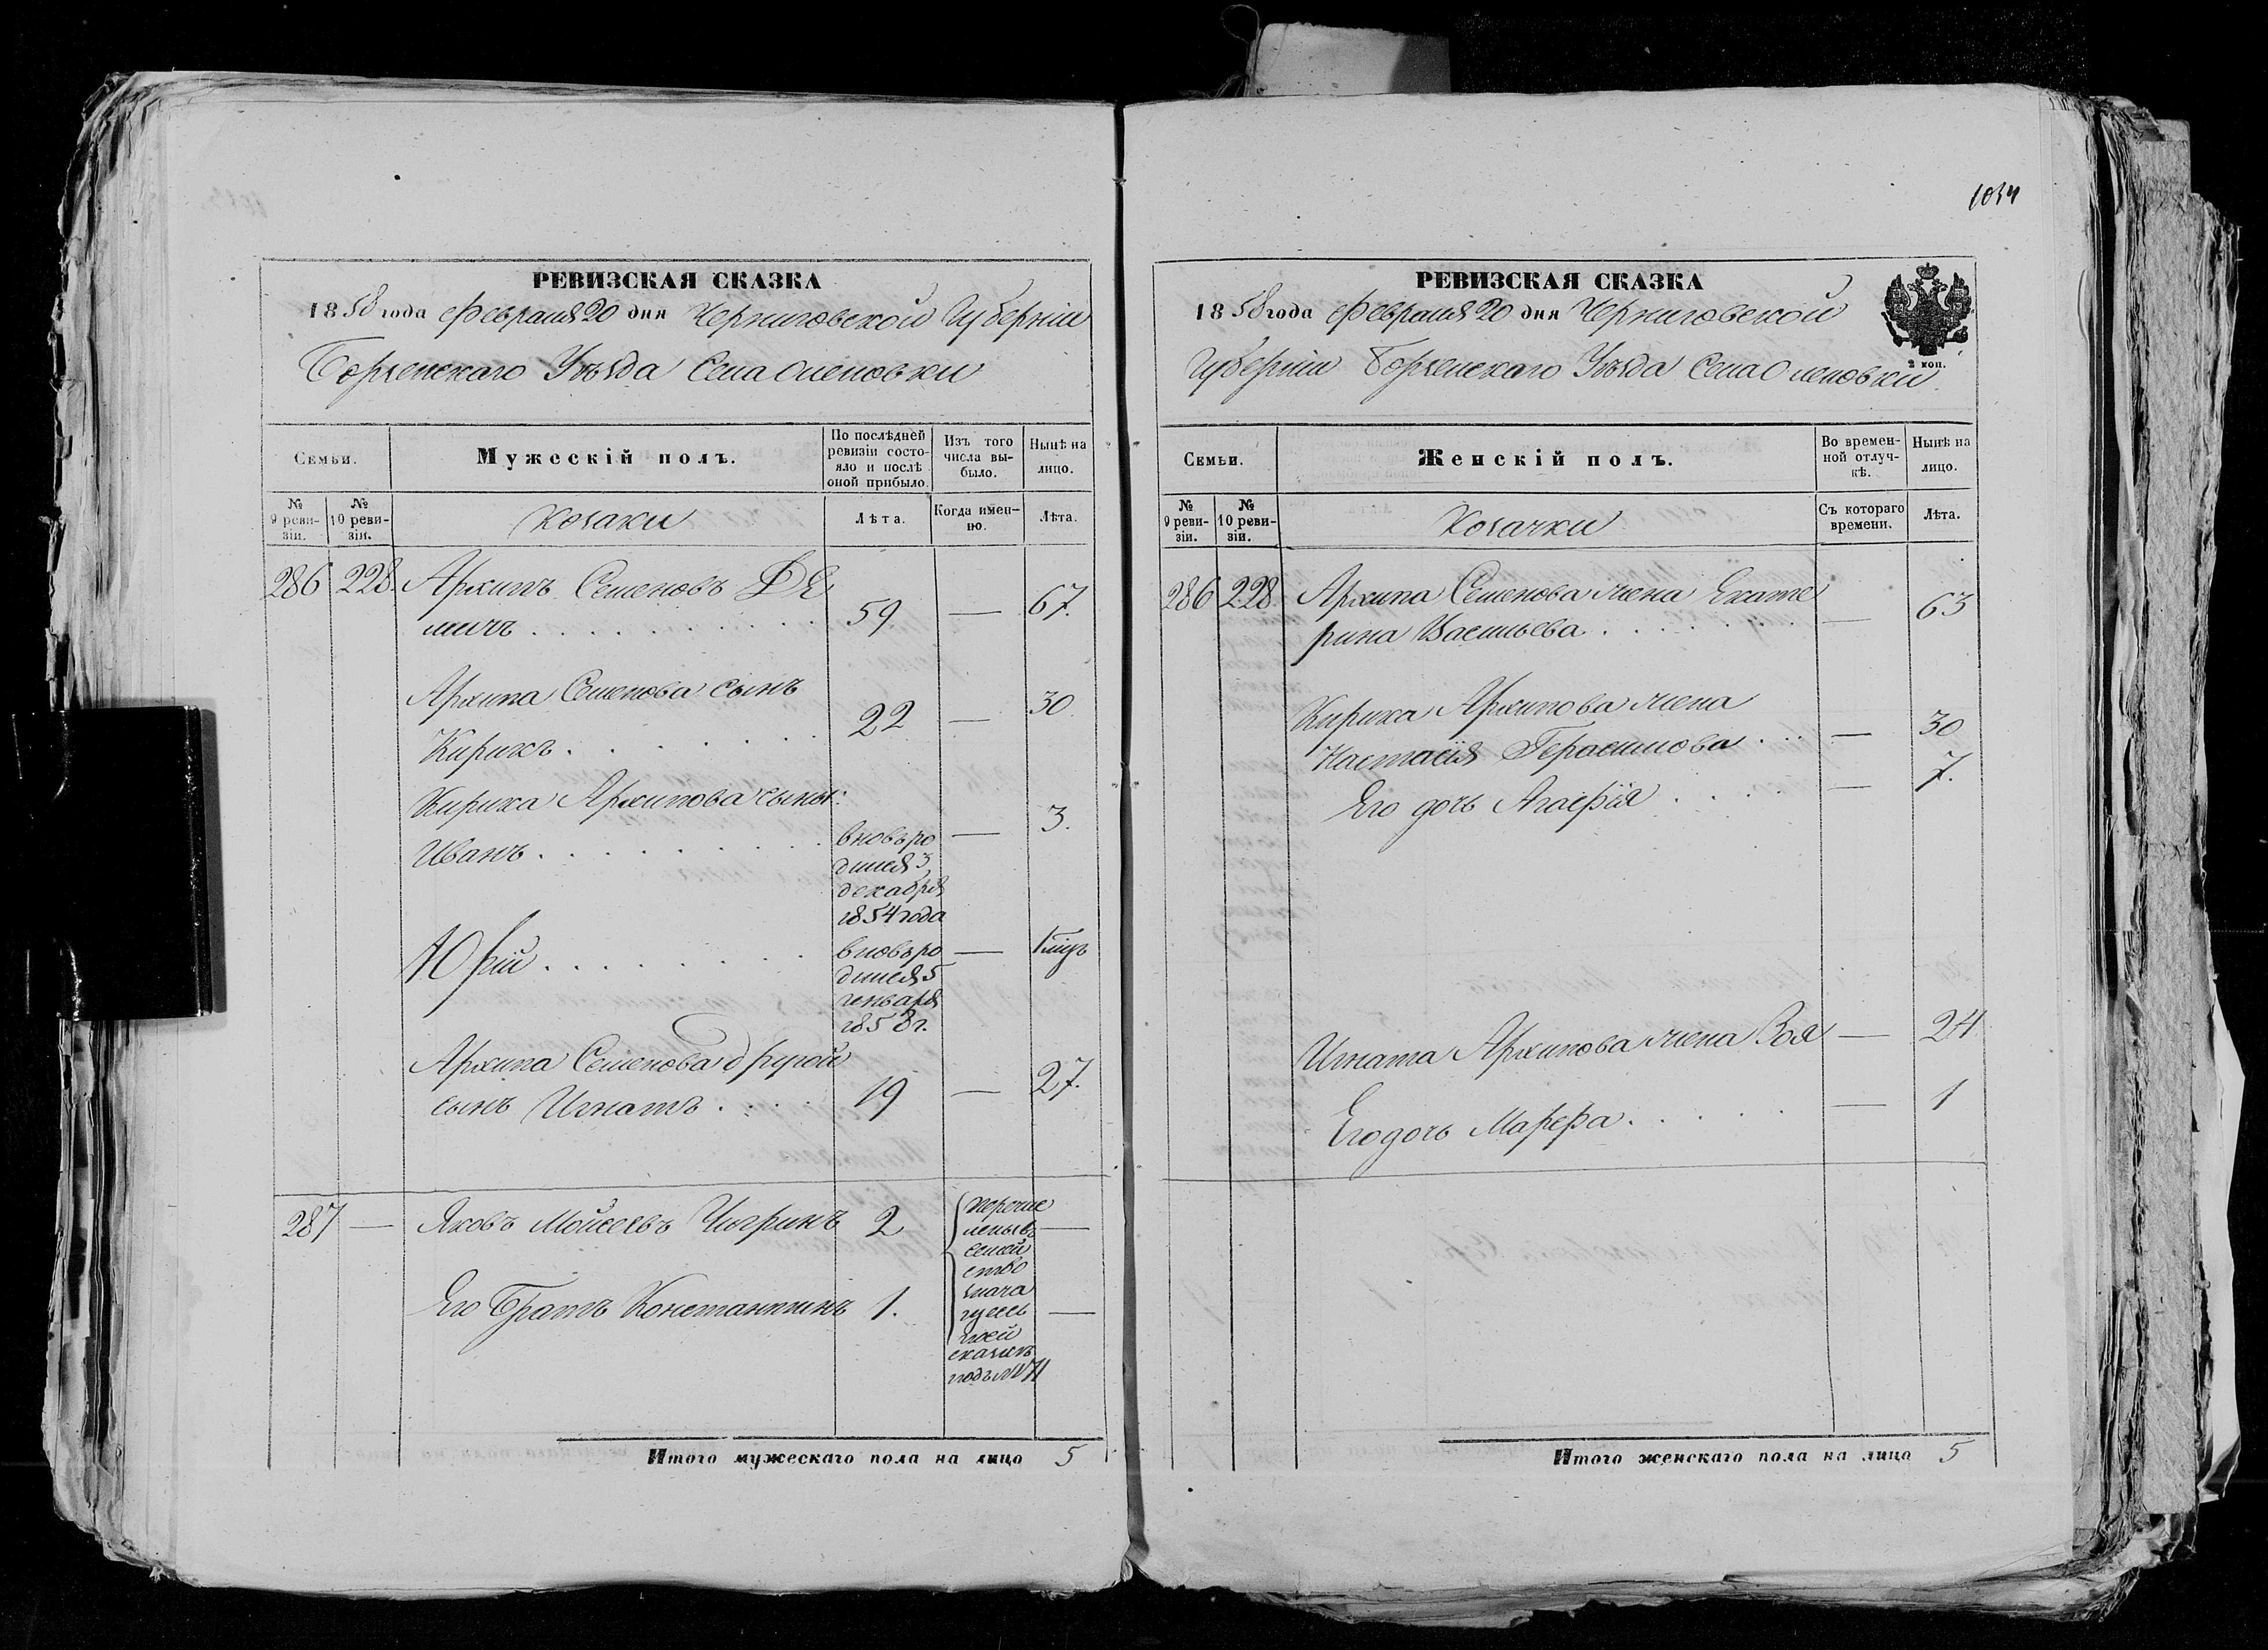 РЕВИЗСКАЯ СКАЗКА
1858 года Февраля 20 дня Черниговской Губерніи
Борзенскаго Уѣзда Села Оленовки
Семьи.
Мужескій полъ.
По послѣдней ревизіи состояло и послѣ оной прибыло.
Изъ того числа выбыло.
Нынѣ на лицо.
№ 9 ревизіи.
№ 10 ревизіи.
Козаки
Лѣта.
Когда именно.
Лѣта.
286 228. Архипъ Семеновъ Де
мичъ . . . . . . . . . . 59 — 67.
Архипа Семенова сынъ
Кирикъ . . . . . . . . 22 — 30.
Кирика Архипова сыны:
Иванъ . . . . . . . . . вновь ро — 3.
дился 3
декабря
1854 года
Юрій . . . . . . . . вновь ро — 1 мцъ
дился 5
генваря
1858 г.
Архипа Семенова другой
сынъ Игнатъ . . . . 19 — 27.
287 — Яковъ Мойсеевъ Чигринъ 2 —
Его Братъ Константинъ 1. —
перечис
лены въ
семей
ство
знача
щуесь
подъ № 71
Итого мужескаго пола на лицо 5
1034
РЕВИЗСКАЯ СКАЗКА
1858 года Февраля 20 дня Черниговской
Губерніи Борзенскаго Уѣзда Села Оленовки
2 коп.
Семьи.
Женскій полъ.
Во временной отлучкѣ.
Нынѣ на лицо.
№ 9 ревизіи.
№ 10 ревизіи.
Козачки
Съ котораго времени.
Лѣта.
286 228 Архипа Семенова жена Екате
рина Васильева . . . . . . . — 63
Кирика Архипова жена
Настасія Герасимова . . . — 30
Его дочь Агафія . . . . — 7.
Игната Архипова жена Зоя — 24
Его дочь Марфа . . . . . — 1
Итого женскаго пола на лицо 5